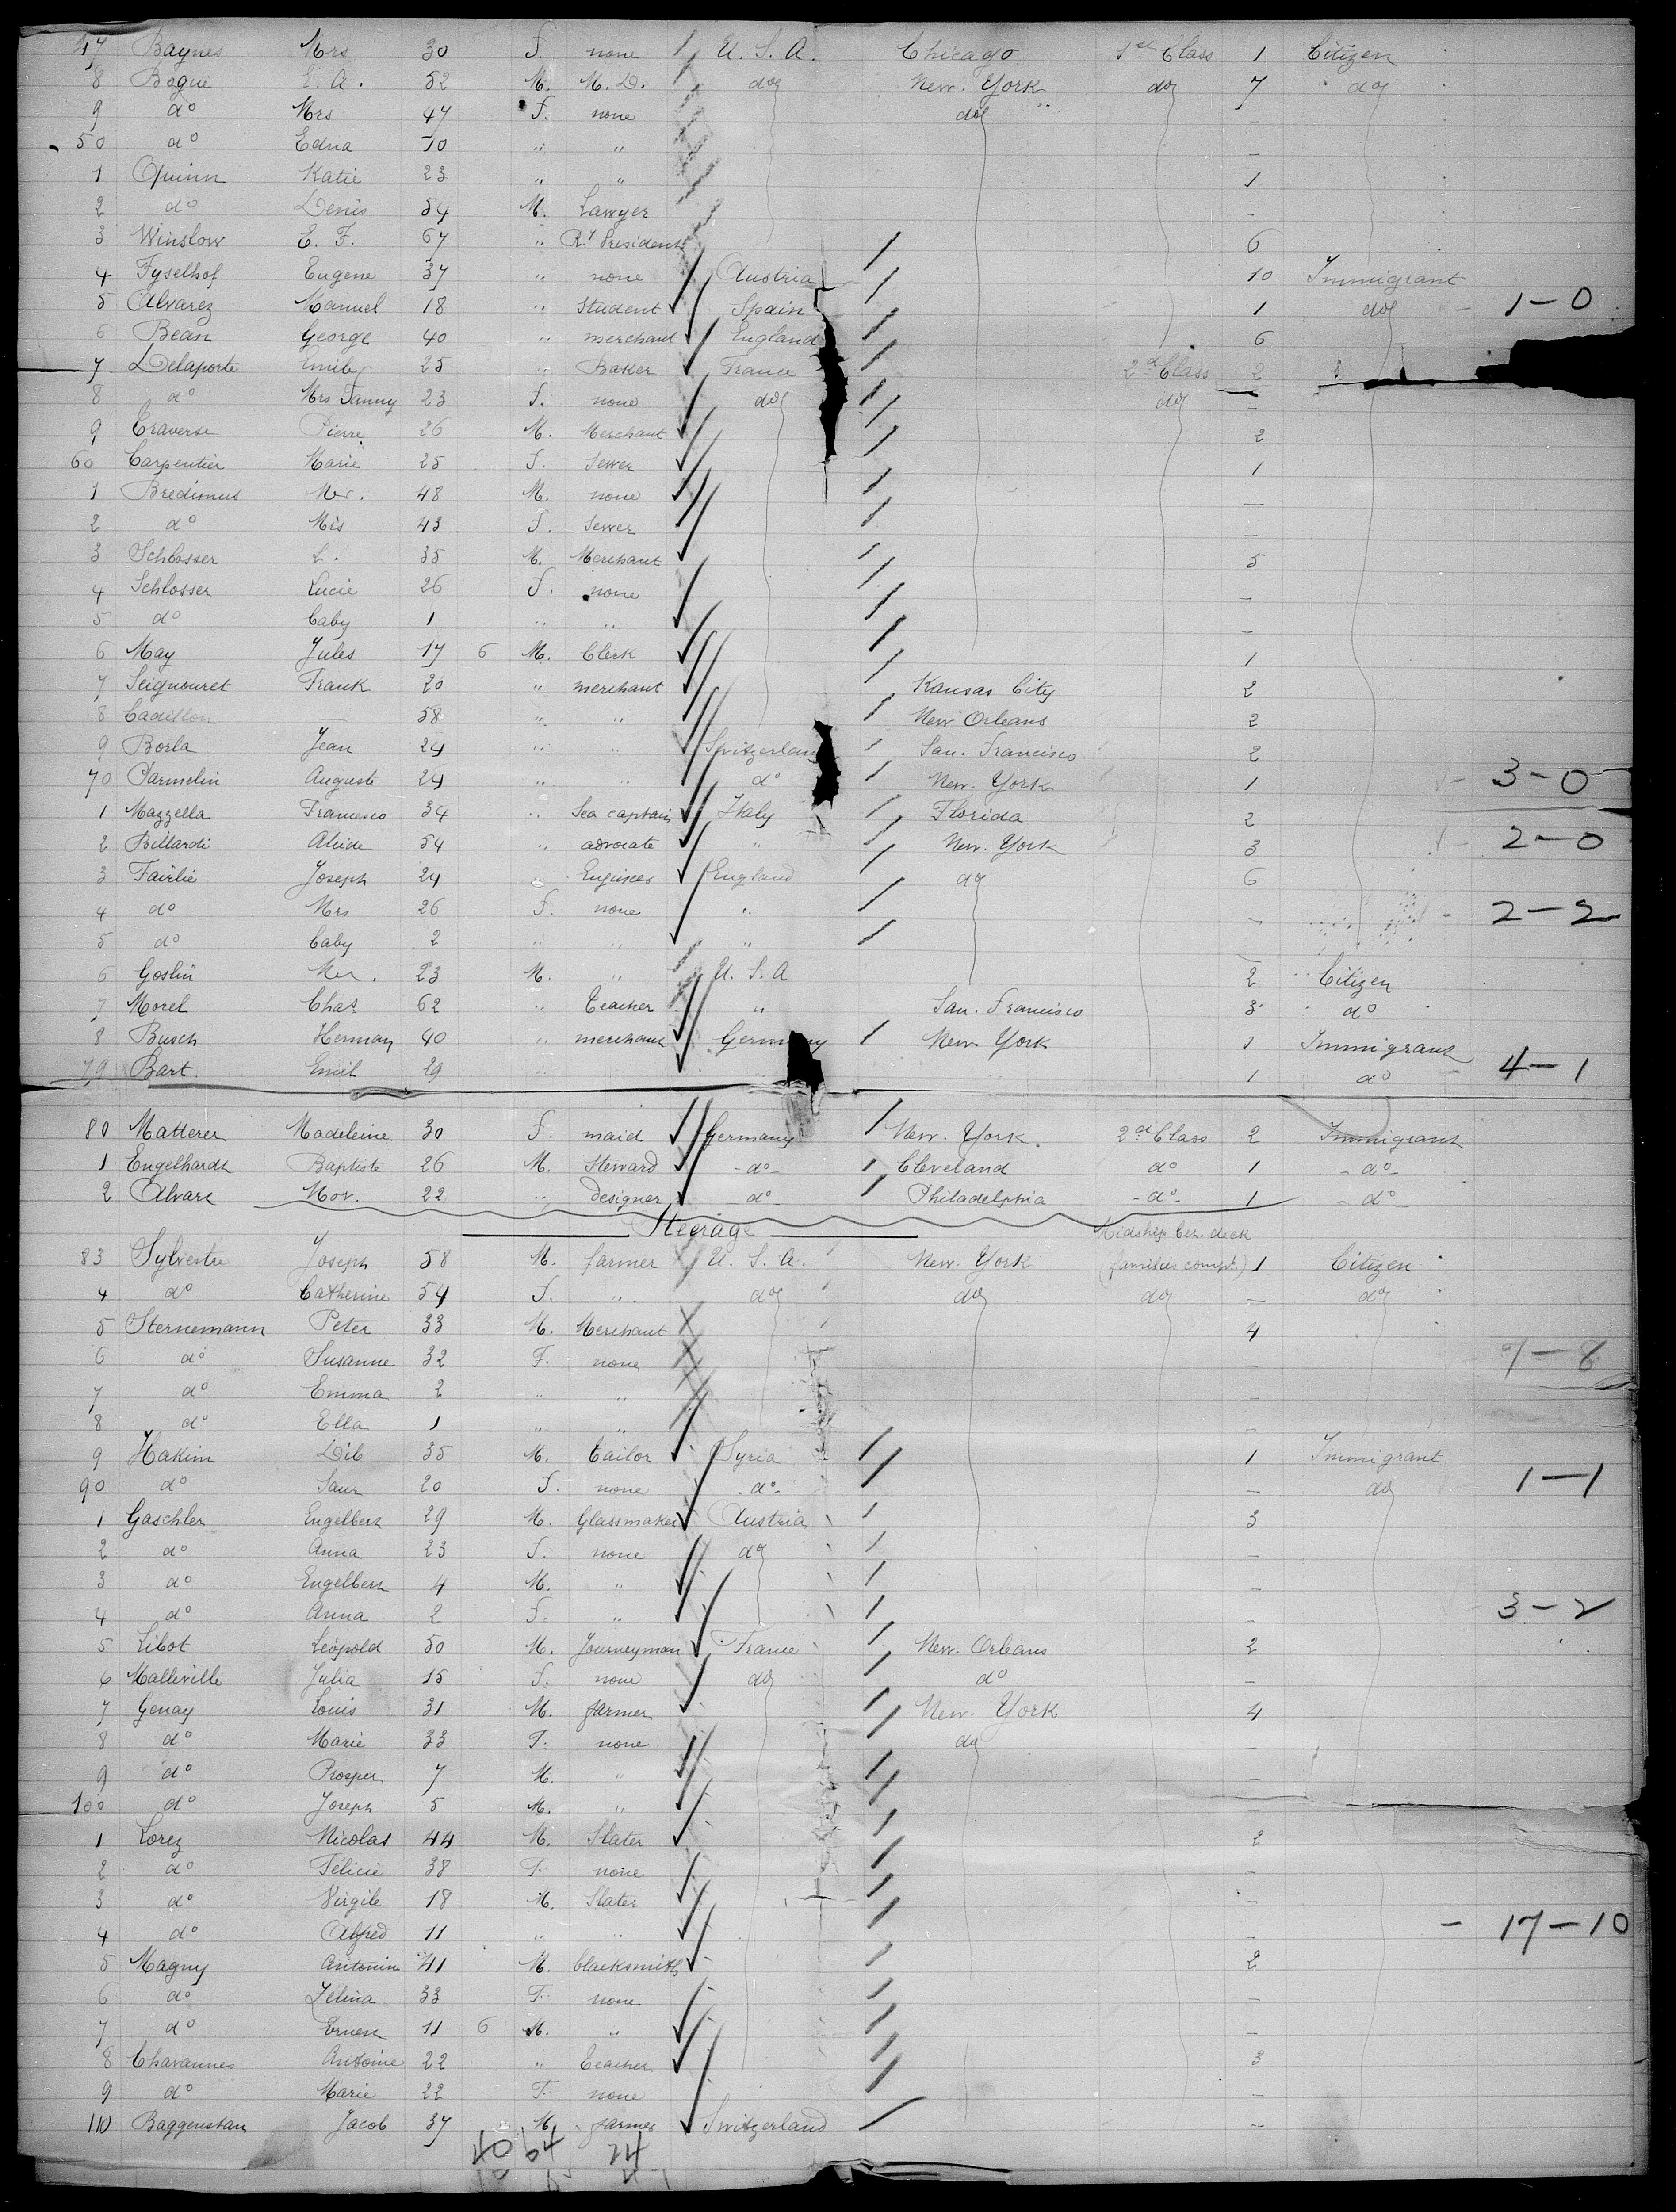 47 Baynes Mrs 30 F. none U. S. A. Chicago 1st Class 1 Citizen
8 Bogue E. A. 52 M. M. D. do New. York do 7 do
9 do Mrs 47 F. none do —
50 do Edna 10 " " —
1 Quinn Katie 23 " " 1
2 do Denis 54 M. Lawyer —
3 Winslow E. F. 67 " Ry President 6
4 Fyselhof Eugene 37 " none Austria 10 Immigrant
5 Alvarez Manuel 18 " Student Spain 1 do 1-0
6 Bean George 40 " merchant England 6
7 Delaporte Emile 25 " Baker France 2d Class 2
8 do Mrs Fanny 23 F. none do do —
9 Traverse Pierre 26 M. Merchant 2
60 Carpentier Marie 25 F. Sewer 1
1 Bredimus Mer. 48 M. none —
2 do Mrs 43 F. Sewer —
3 Schlosser L. 35 M. Merchant 5
4 Schlosser Lucie 26 F. none —
5 do baby 1 " " —
6 May Jules 17 6 M. Clerk 1
7 Seignouret Frank 20 " merchant Kansas City 2
8 Cadillon — 58 " " New Orleans 2
9 Borla Jean 24 " " Switzerland San. Francisco 2
70 Parmelin Auguste 24 " " do New. York 1 3-0
1 Mazzella Francesco 34 " Sea captain Italy Florida 2
2 Billardi Alcide 54 " advocate " New. York 3 2-0
3 Fairlie Joseph 24 " Engineer England do 6
4 do Mrs 26 F. none " — 2-2
5 do baby 2 " " " —
6 Goslin Mer. 23 M. " U. S. A 2 Citizen
7 Morel Chas 62 " Teacher " San. Francisco 3 do
8 Busch Herman 40 " merchant Germany New. York 1 Immigrant
79 Bart Emil 29 1 do 4-1
80 Matterer Madeleine 30 F. maid Germany New. York. 2d Class 2 Immigrant
1 Engelhardt Baptiste 26 M. Steward -do- Cleveland do 1 -do-
2 Alvare Mor. 22 " designer do Philadelphia -do- 1 -do
Steerage
Midship betw. deck
83 Sylvestre Joseph 58 M. farmer U. S. A. New. York (families compt.) 1 Citizen
4 do Catherine 54 F. " do do do — do
5 Sternemann Peter 33 M. Merchant 4
6 do Susanne 32 F. none — 7-6
7 do Emma 2 " " —
8 do Ella 1 " " —
9 Hakim Dib 35 M. tailor Syria 1 Immigrant
90 do Saur 20 F. none -do- — do 1-1
1 Gaschler Engelbert 29 M. Glassmaker Austria 3
2 do Anna 23 F. none do —
3 do Engelbert 4 M. " —
4 do Anna 2 F. " — 3-2
5 Libot Léopold 50 M. Journeyman France New. Orleans 2
6 Malleville Julia 15 F. none do do —
7 Genay Louis 31 M. farmer New. York 4
8 do Marie 33 F. none do —
9 do Prosper 7 M. " —
100 do Joseph 5 M. " —
1 Lorez Nicolas 44 M. Slater 2
2 do Félicie 38 F. none —
3 do Virgile 18 M. Slater —
4 do Alfred 11 " " — - 17-10
5 Magny Antonin 41 M. blacksmith 2
6 do Zélina 33 F. none —
7 do Ernest 11 6 M. " —
8 Chavannes Antoine 22 " Teacher 3
9 do Marie 22 F. none —
110 Baggenstan Jacob 37 M. farmer Switzerland —
40 64 24